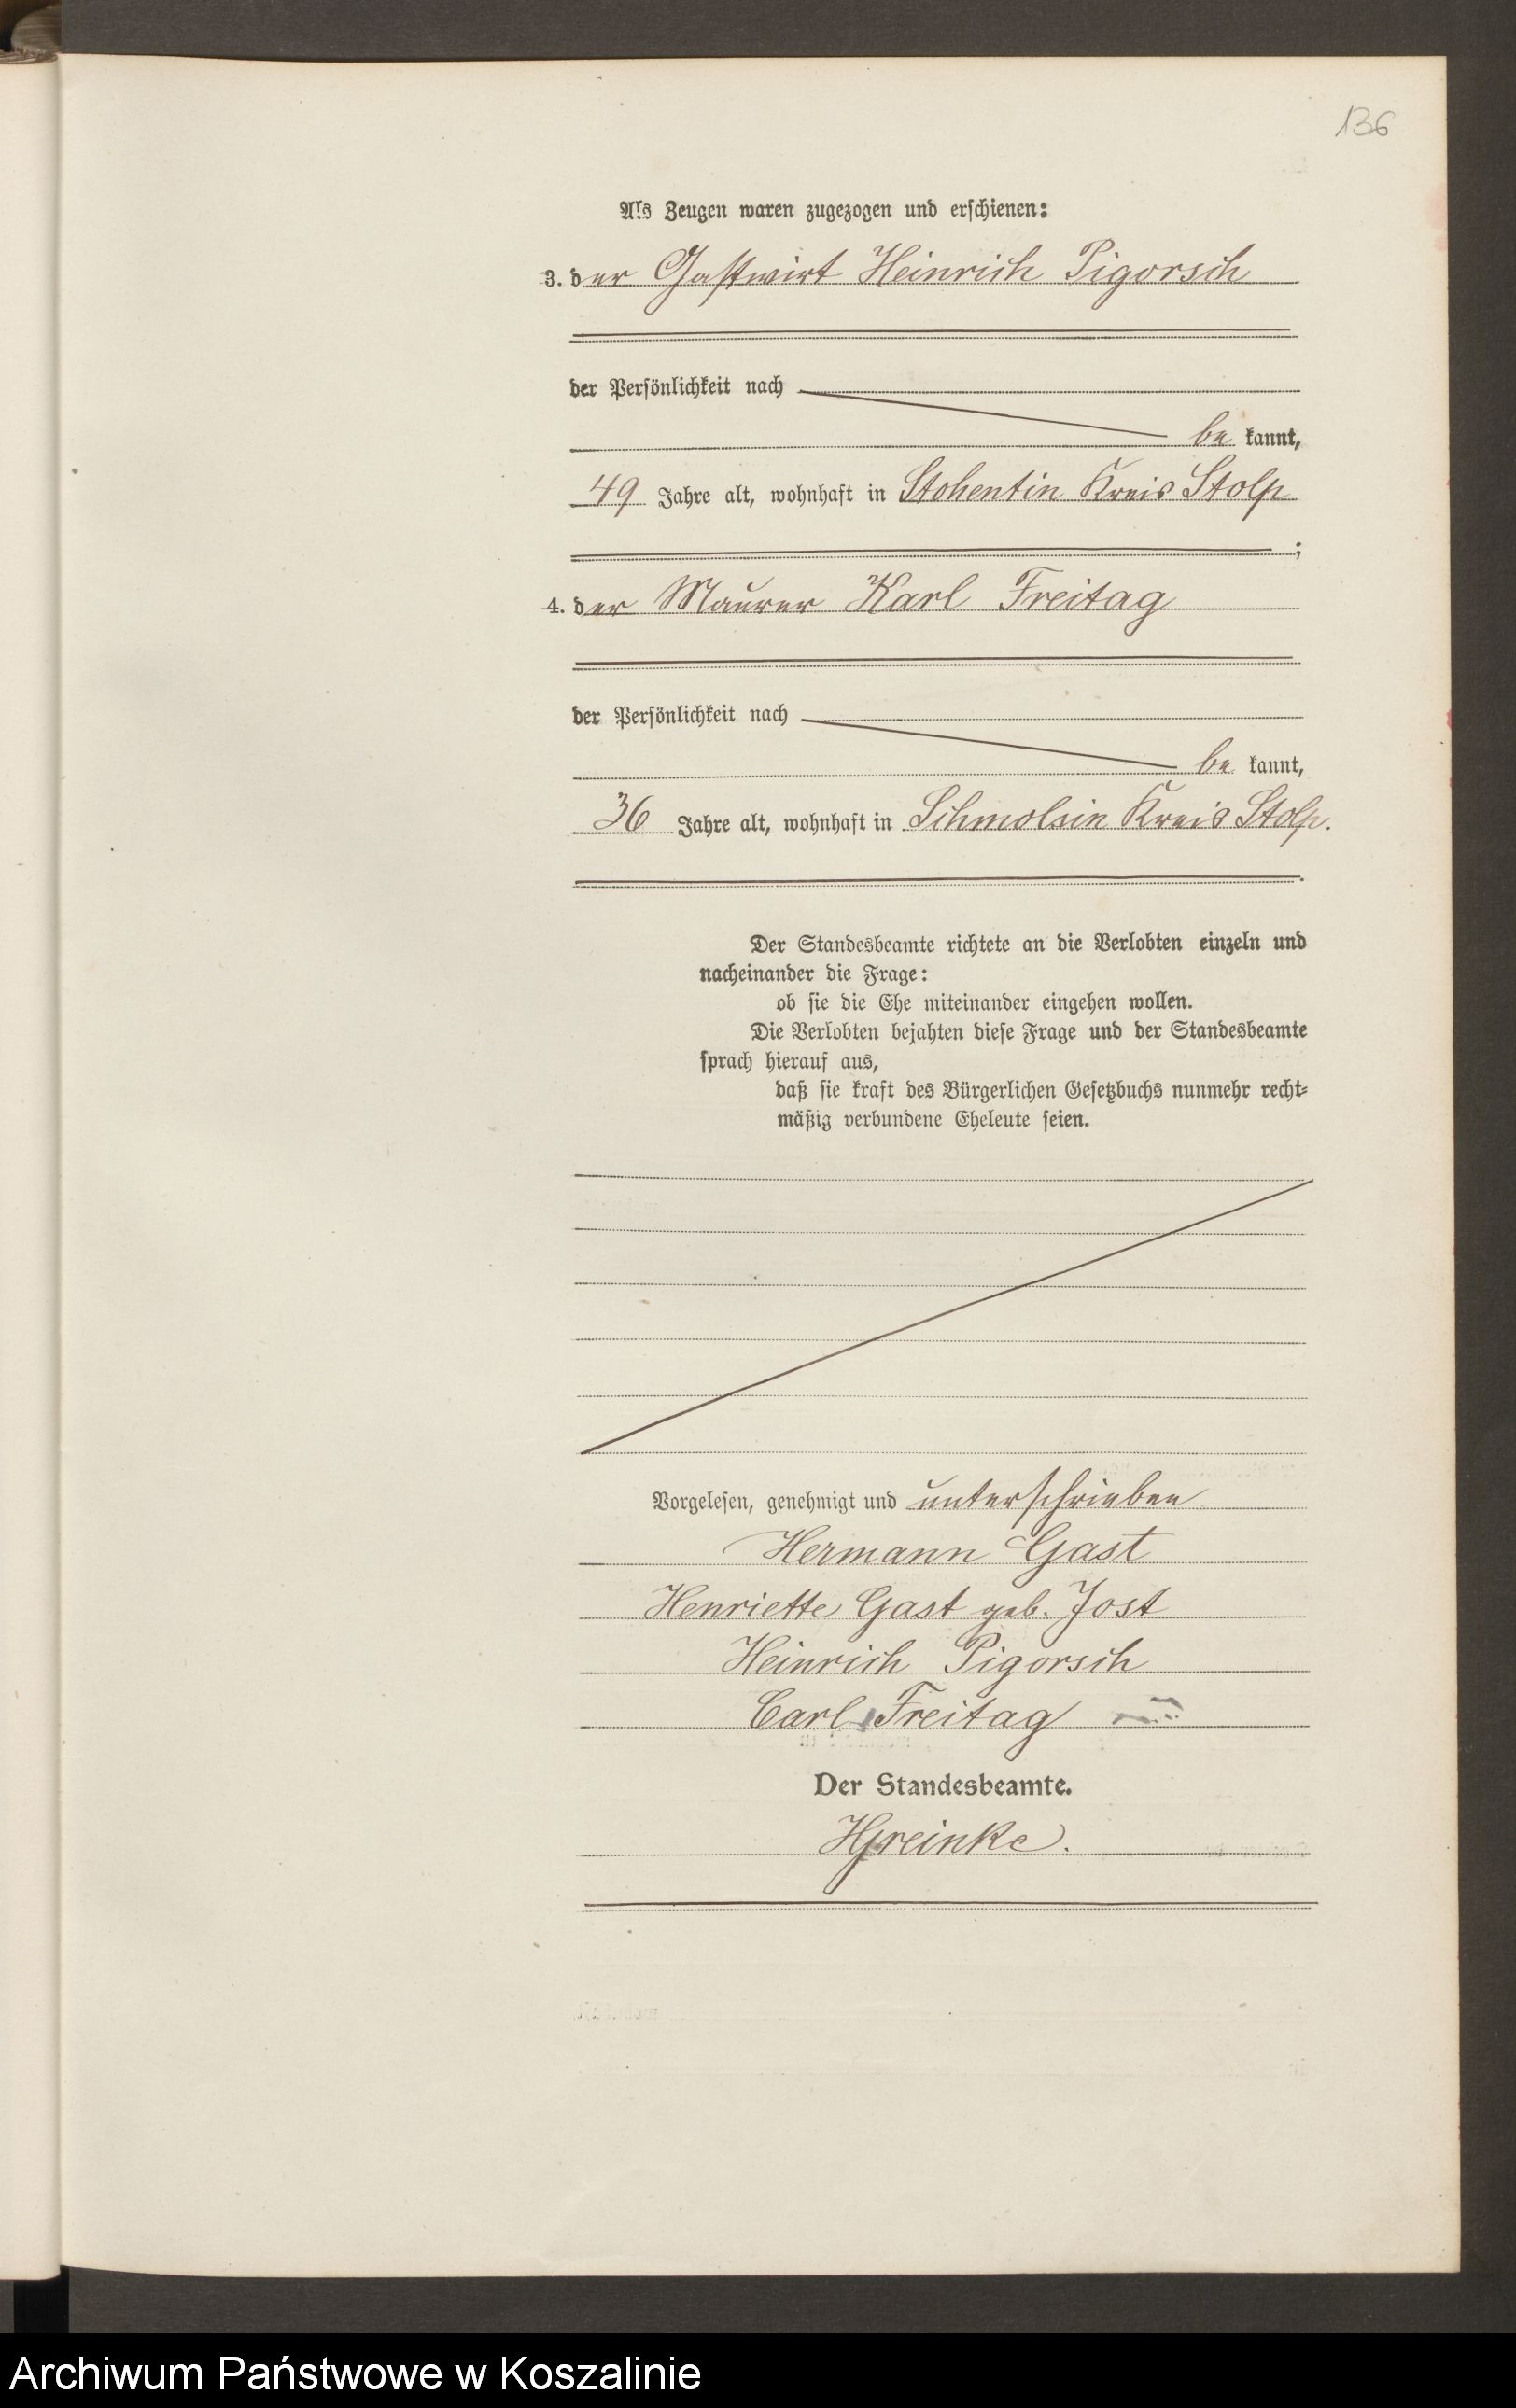 136
Als Zeugen waren zugezogen und erschienen:
3. der Gastwirt Heinrich Pigorsch
der Persönlichkeit nach
be kannt,
49 Jahre alt, wohnhaft in Stohentin Kreis Stolp
;
4. der Maurer Karl Freitag
der Persönlichkeit nach
be kannt,
36 Jahre alt, wohnhaft in Schmolsin Kreis Stolp.
Der Standesbeamte richtete an die Verlobten einzeln und
nacheinander die Frage:
ob sie die Ehe miteinander eingehen wollen.
Die Verlobten bejahten diese Frage und der Standesbeamte
sprach hierauf aus,
daß sie kraft des Bürgerlichen Gesetzbuchs nunmehr recht-
mäßig verbundene Eheleute seien.
Vorgelesen, genehmigt und unterschrieben
Hermann Gast
Henriette Gast geb. Jost
Heinrich Pigorsch
Carl Freitag
Der Standesbeamte.
HGreinke.
Archiwum Państwowe w Koszalinie